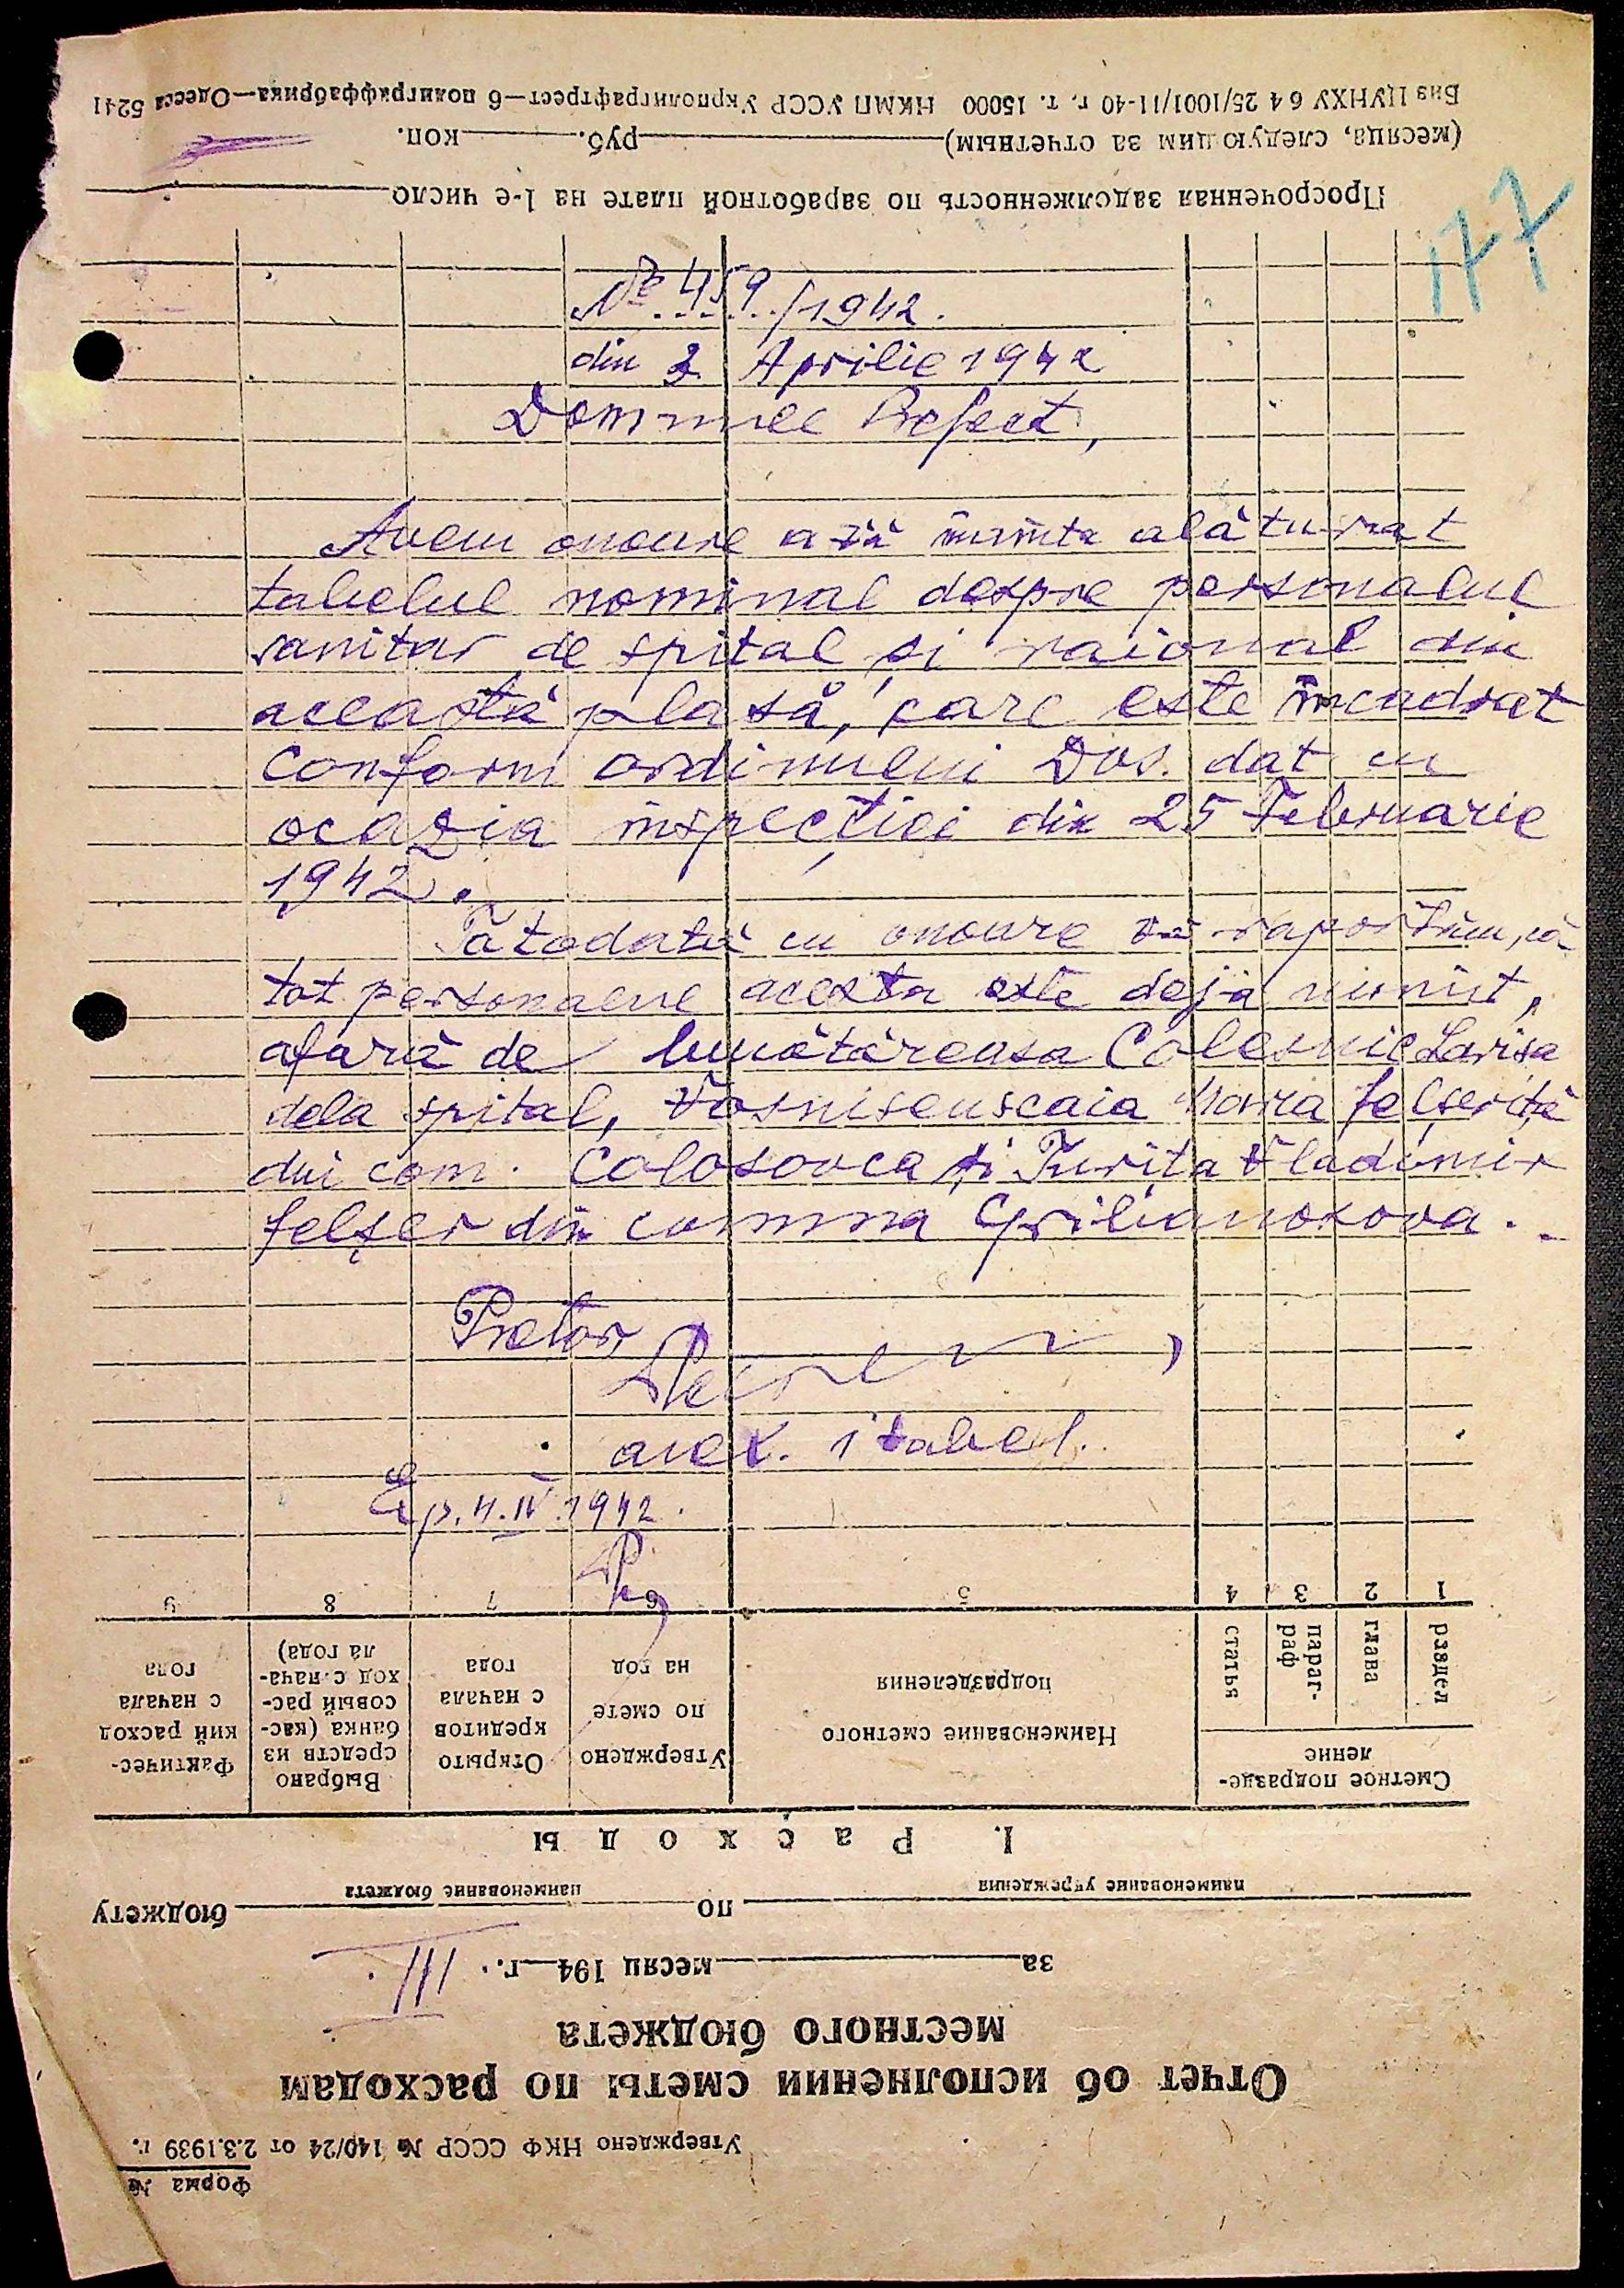 Виз ЦУНХУ 64 25/1001/11-40 г. т. 15000 НКМП УССР Укрполиграфтрест—6 полиграффабрика—Одесса 5241
(месяца, следующим за отчетным) руб. коп.
Просроченная задолженность по заработной плате на 1-е число
177
№ 459/1942.
din 2 Aprilie 1942
Domnule Prefect,
Avem onoare a vă înainta alăturat
tabelul nominal despre personalul
sanitar de spital și raional din
această plasă, care este încadrat
conform ordinului Dvs. dat cu
ocazia inspecției din 25 Februarie
1942.
Tatodată cu onoare vă raportăm, că
tot personalul acesta este deja numit,
afară de bucătăreasa Colesnic Larisa
dela spital, Vosnisenscaia Maria felșeriță
din com. Colosovca și Turița Vladimir
felșer din comuna
Pretor,
anex. 1 tabel.
Ep. 4.IV.1942.
1 2 3 4 5 6 7 8 9
Сметное подразде-
ление
раздел
глава
параг-
раф
статья
Наименование сметного
подразделения
Утверждено
по смете
на год
Открыто
кредитов
с начала
года
Выбрано
средств из
банка (кас-
совый рас-
ход с нача-
ла года)
Фактичес-
кий расход
с начала
года
1. Расходы
наименование учреждения наименование бюджета
по бюджету
за месяц 194 г. III.
местного бюджета
Отчет об исполнении сметы по расходам
Утверждено НКФ СССР № 140/24 от 2.3.1939 г.
Форма №